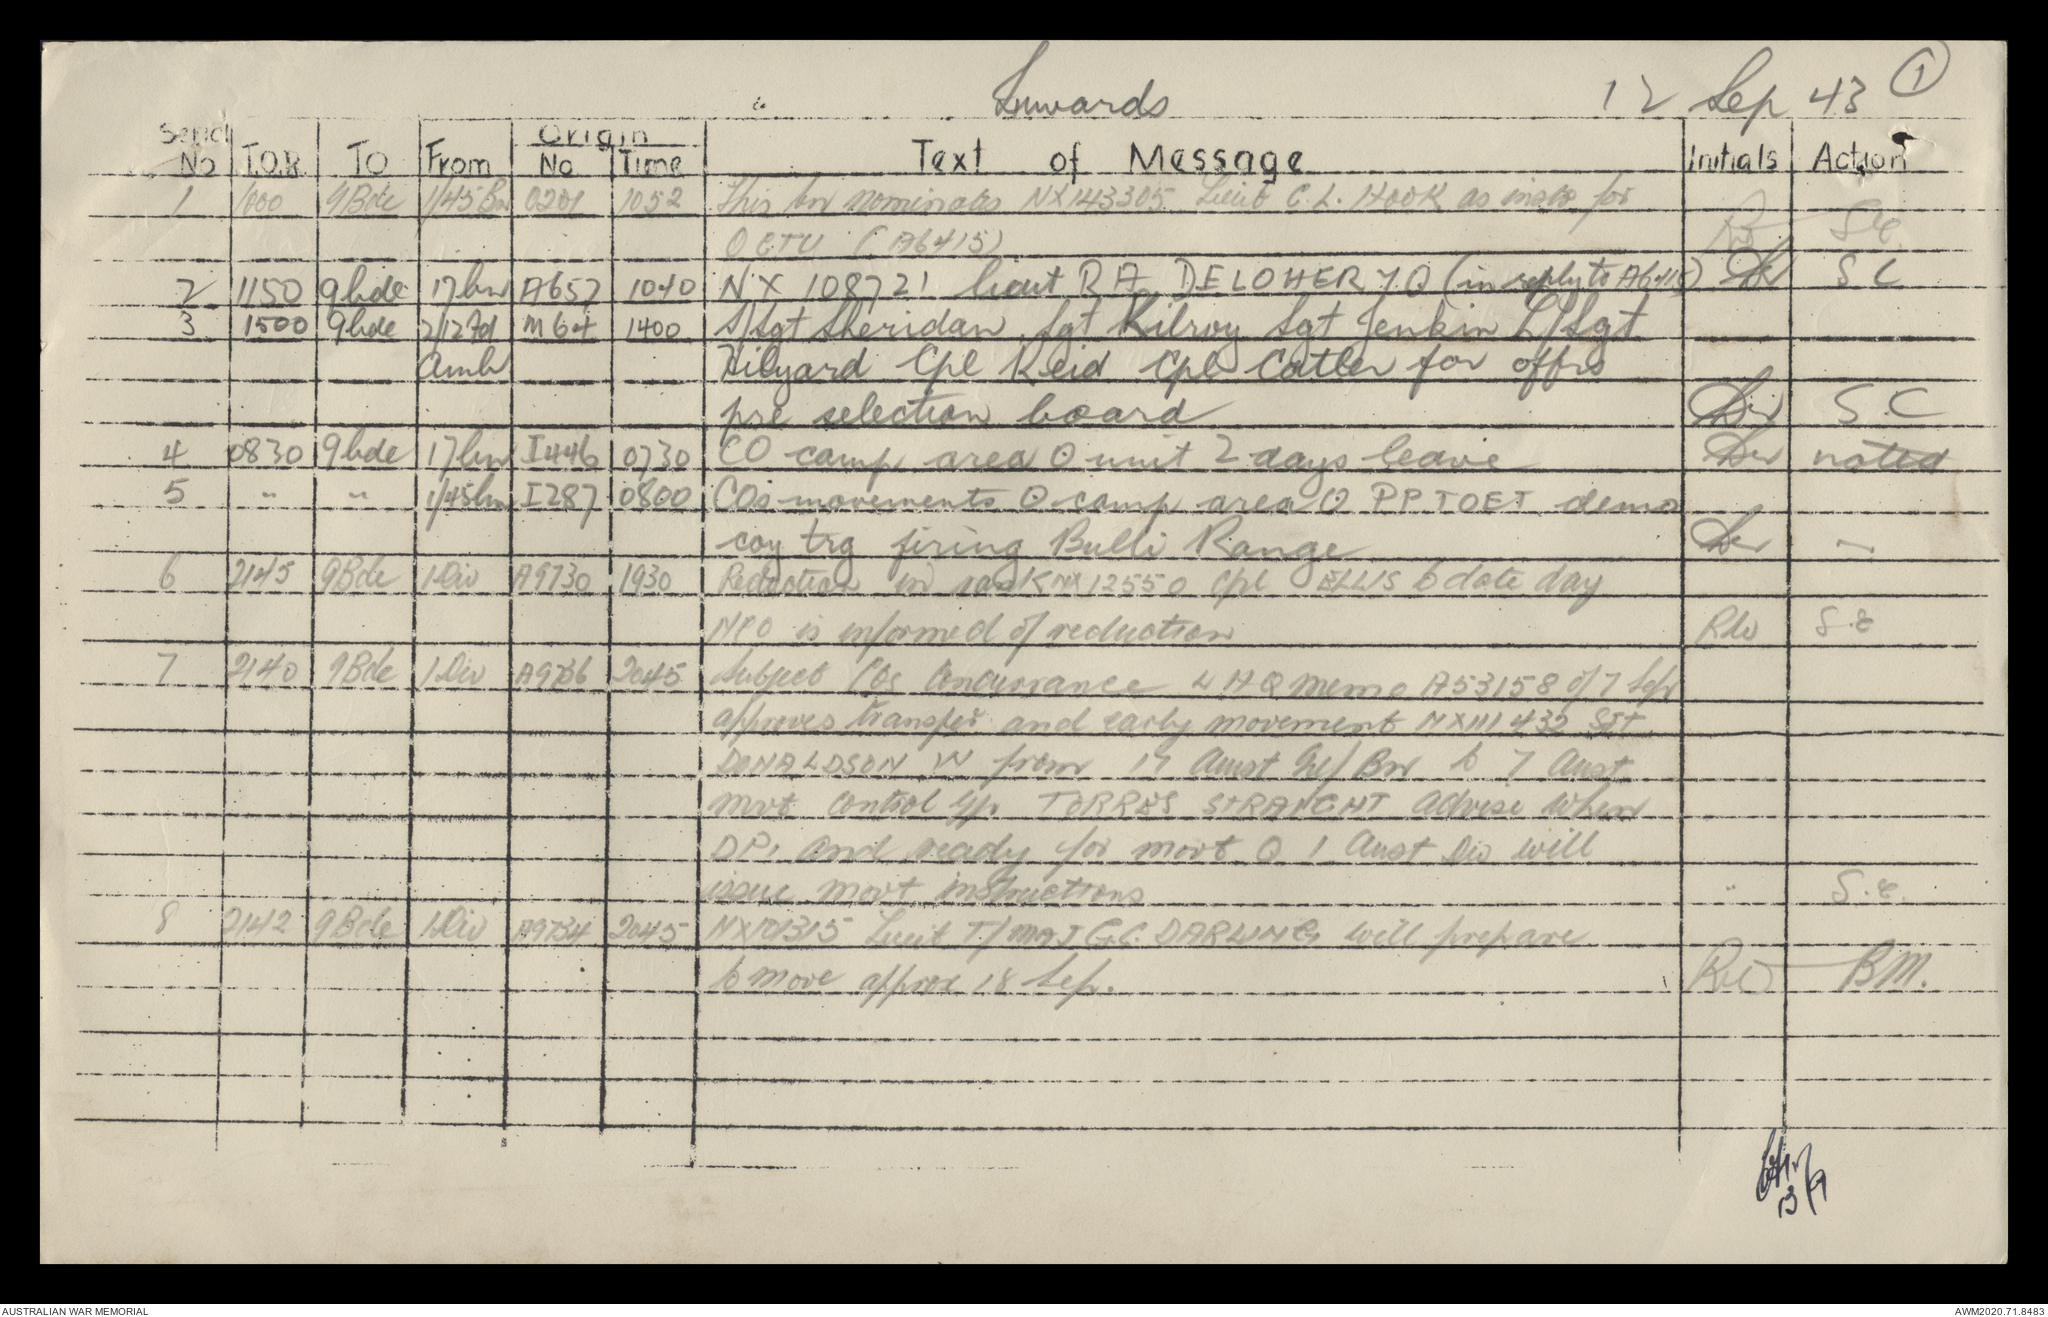 Inwards 12 Sep 43 1
Serial Origin
No T.O.R TO From No Time Text of Message Initials Action
1 1000 9Bde 1/45 Bn 0201 1052 This bn nominates NX143305 Lieut C.L. HOOK as instr for
OCTU (A6415) S.C.
2 1150 9bde 17bn A657 1040 NX 108721 Lieut R A DELOHERY O (in reply to A6415) S C
3 1500 9bde 2/12 Fd M64 1400 S/Sgt Sheridan Sgt Kilroy Sgt Jenkin L/Sgt
Amb Hilyard Cpl Reid Cpl Cotter for offrs
pre selection board S.C
4 0830 9bde 17bn I446 0730 CO camp area O unit 2 days leave noted
5 " " 1/45bn I287 0800 COs movements O camp area O PP TOET demo
coy trg firing Bulli Range —
6 2145 9Bde 1 Div A9730 1930 Reduction in rank NX12550 Cpl ELLIS to date day
NCO is informed of reduction S.C
7 2140 9Bde 1 Div A9736 2045 Subject COs concurrance LHQ memo A53158 of 7 Sep
approves transfer and early movement NX111432 Sjt
DONALDSON W from 17 Aust Inf/Bn to 7 Aust
Mvt Control Gp. TORRES STRAIGHT advise when
DP1 and ready for movt O 1 Aust Div will
issue movt instructions " S.C.
8 2142 9Bde 1 Div A9734 2045 Lieut T/MAJ G.C. DARLING will prepare
to move approx 18 Sep. B.M.
13/9
AUSTRALIAN WAR MEMORIAL AWM2020.71.8483